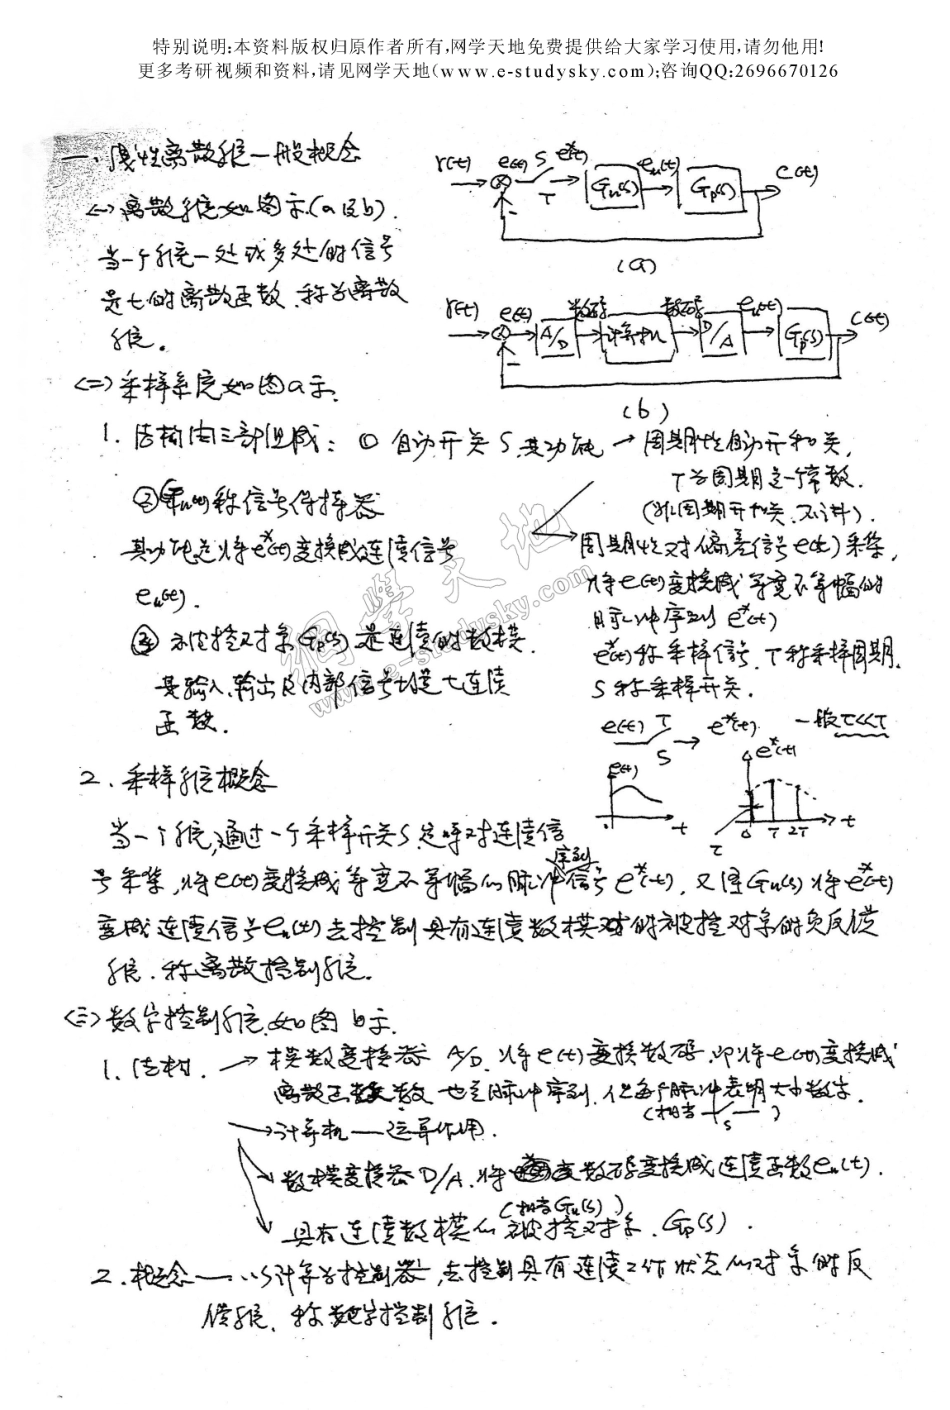 特别说明:本资料版权归原作者所有,网学天地免费提供给大家学习使用,请勿他用!
更多考研视频和资料,请见网学天地(www.e-studysky.com);咨询QQ:2696670126
一、线性离散系统一般概念
<一>离散系统如图示.(a及b).
当一个系统一处或多处的信号
是t的离散函数,称为离散
系统。
r(t) e(t) S e*(t) T Gh(s) eh(t) Gp(s) c(t)
(a)
r(t) e(t) A/D 数码 计算机 数码 D/A eh(t) Gp(s) c(t)
(b)
<二>采样系统如图a示.
1. 结构由三部组成: ① 自动开关S,其功能→周期性自动开和关,
T为周期是一个常数.
(非周期开和关,不讲).
周期性对偏差信号e(t)采集,
将e(t)变换成等宽不等幅的
脉冲序列e*(t)
e*(t)称采样信号,T称采样周期.
S称采样开关.
②Gh(s)称信号保持器
其功能是将e*(t)变换成连续信号
eh(t).
③ 被控对象Gp(s)是连续的数模.
其输入、输出及内部信号均是t连续
函数.
e(t) τ S → e*(t) 一般τ<<T
e(t) t
e*(t) τ 0 T 2T t
2、采样系统概念
当一个系统,通过一个采样开关S定时对连续信
号采集,将e(t)变换成等宽不等幅的脉冲序列信号e*(t),又经Gh(s)将e*(t)
变成连续信号eh(t)去控制具有连续数模的被控对象的负反馈
系统.称离散控制系统.
<三>数字控制系统.如图b示.
1. 结构. → 模数变换器 A/D.将e(t)变换数码.即将e(t)变换成
离散函数 也是脉冲序列.但每个脉冲表明大小数字.
(相当 S )
→计算机—运算作用.
数模变换器D/A.将数码变换成连续函数eh(t).
(相当Gh(s))
具有连续数模的被控对象.Gp(s).
2.概念—.以计算为控制器,去控制具有连续工作状态的对象的反
馈系统.称数字控制系统.
網學天地
www.e-studysky.com